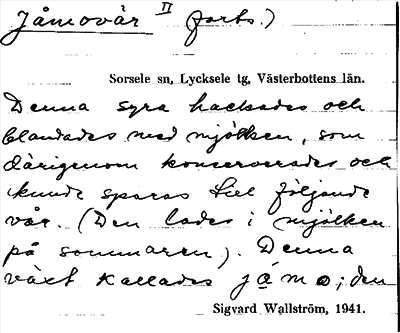 Jåmovår II forts.)
Sorsele sn, Lycksele tg, Västerbottens län.
Denna syra hackades och
blandades med mjölken, som
därigenom konserverades och
kunde sparas till följande
vår. (Den lades i mjölken
på sommaren). Denna
växt kallades jåmo; den
Sigvard Wallström, 1941.